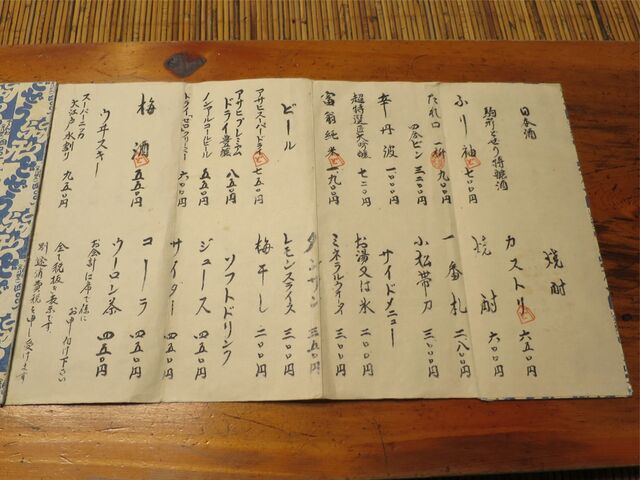 日本酒
駒形どぜう特撰酒
ふり袖 七〇〇円
たれ口 一杯 九〇〇円
四合ビン 三三〇〇円
辛丹波 一〇〇〇円
超特選 大吟醸 七二〇円
富翁純米 一、九〇〇円
ビール
アサヒスーパードライ 七五〇円
アサヒプレミアム
ドライ豊醸 八五〇円
ノンアルコールビール
ドライゼロフリー 六〇〇円
梅酒 五五〇円
ウヰスキー
スーパーニッカ
大江戸 水割り 九五〇円
焼酎
カストリ 六五〇円
焼酎 六〇〇円
一番札 二八〇〇円
小松帯刀 三〇〇〇円
サイドメニュー
お湯又は氷 二〇〇円
ミネラルウォーター 三〇〇円
タンサン 三五〇円
レモンスライス 三〇〇円
梅干し 二〇〇円
ソフトドリンク
ジュース 四五〇円
サイダー 四五〇円
コーラ 四五〇円
ウーロン茶 四五〇円
お会計は席で係に
お申し付け下さい
全て税抜き表示です
別途消費税を申し受けます